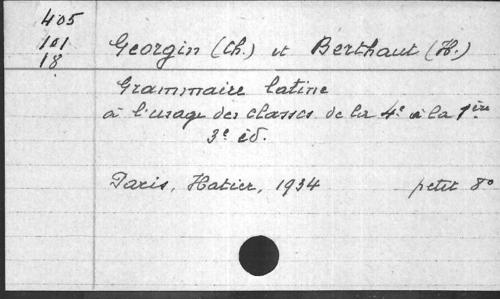 405
101
18
Georgin (Ch.) et Berthaut (H.)
Grammaire latine
à l'usage des classes de la 4e à la 1ère
3e éd.
Paris, Hatier, 1934 petit 8°